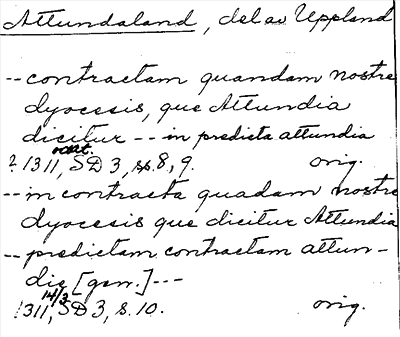 Attundaland, del av Uppland
-- contractam quandam nostre
dyocesis, que Attundia
dicitur -- in predicta attundia
? 1311, SD 3, ss. 8, 9. orig.
-- in contracta quadam nostre
dyocesis que dicitur Attundia
-- predictam contractam attun-
die [gen.] ---
1311 14/3, SD 3, s. 10. orig.